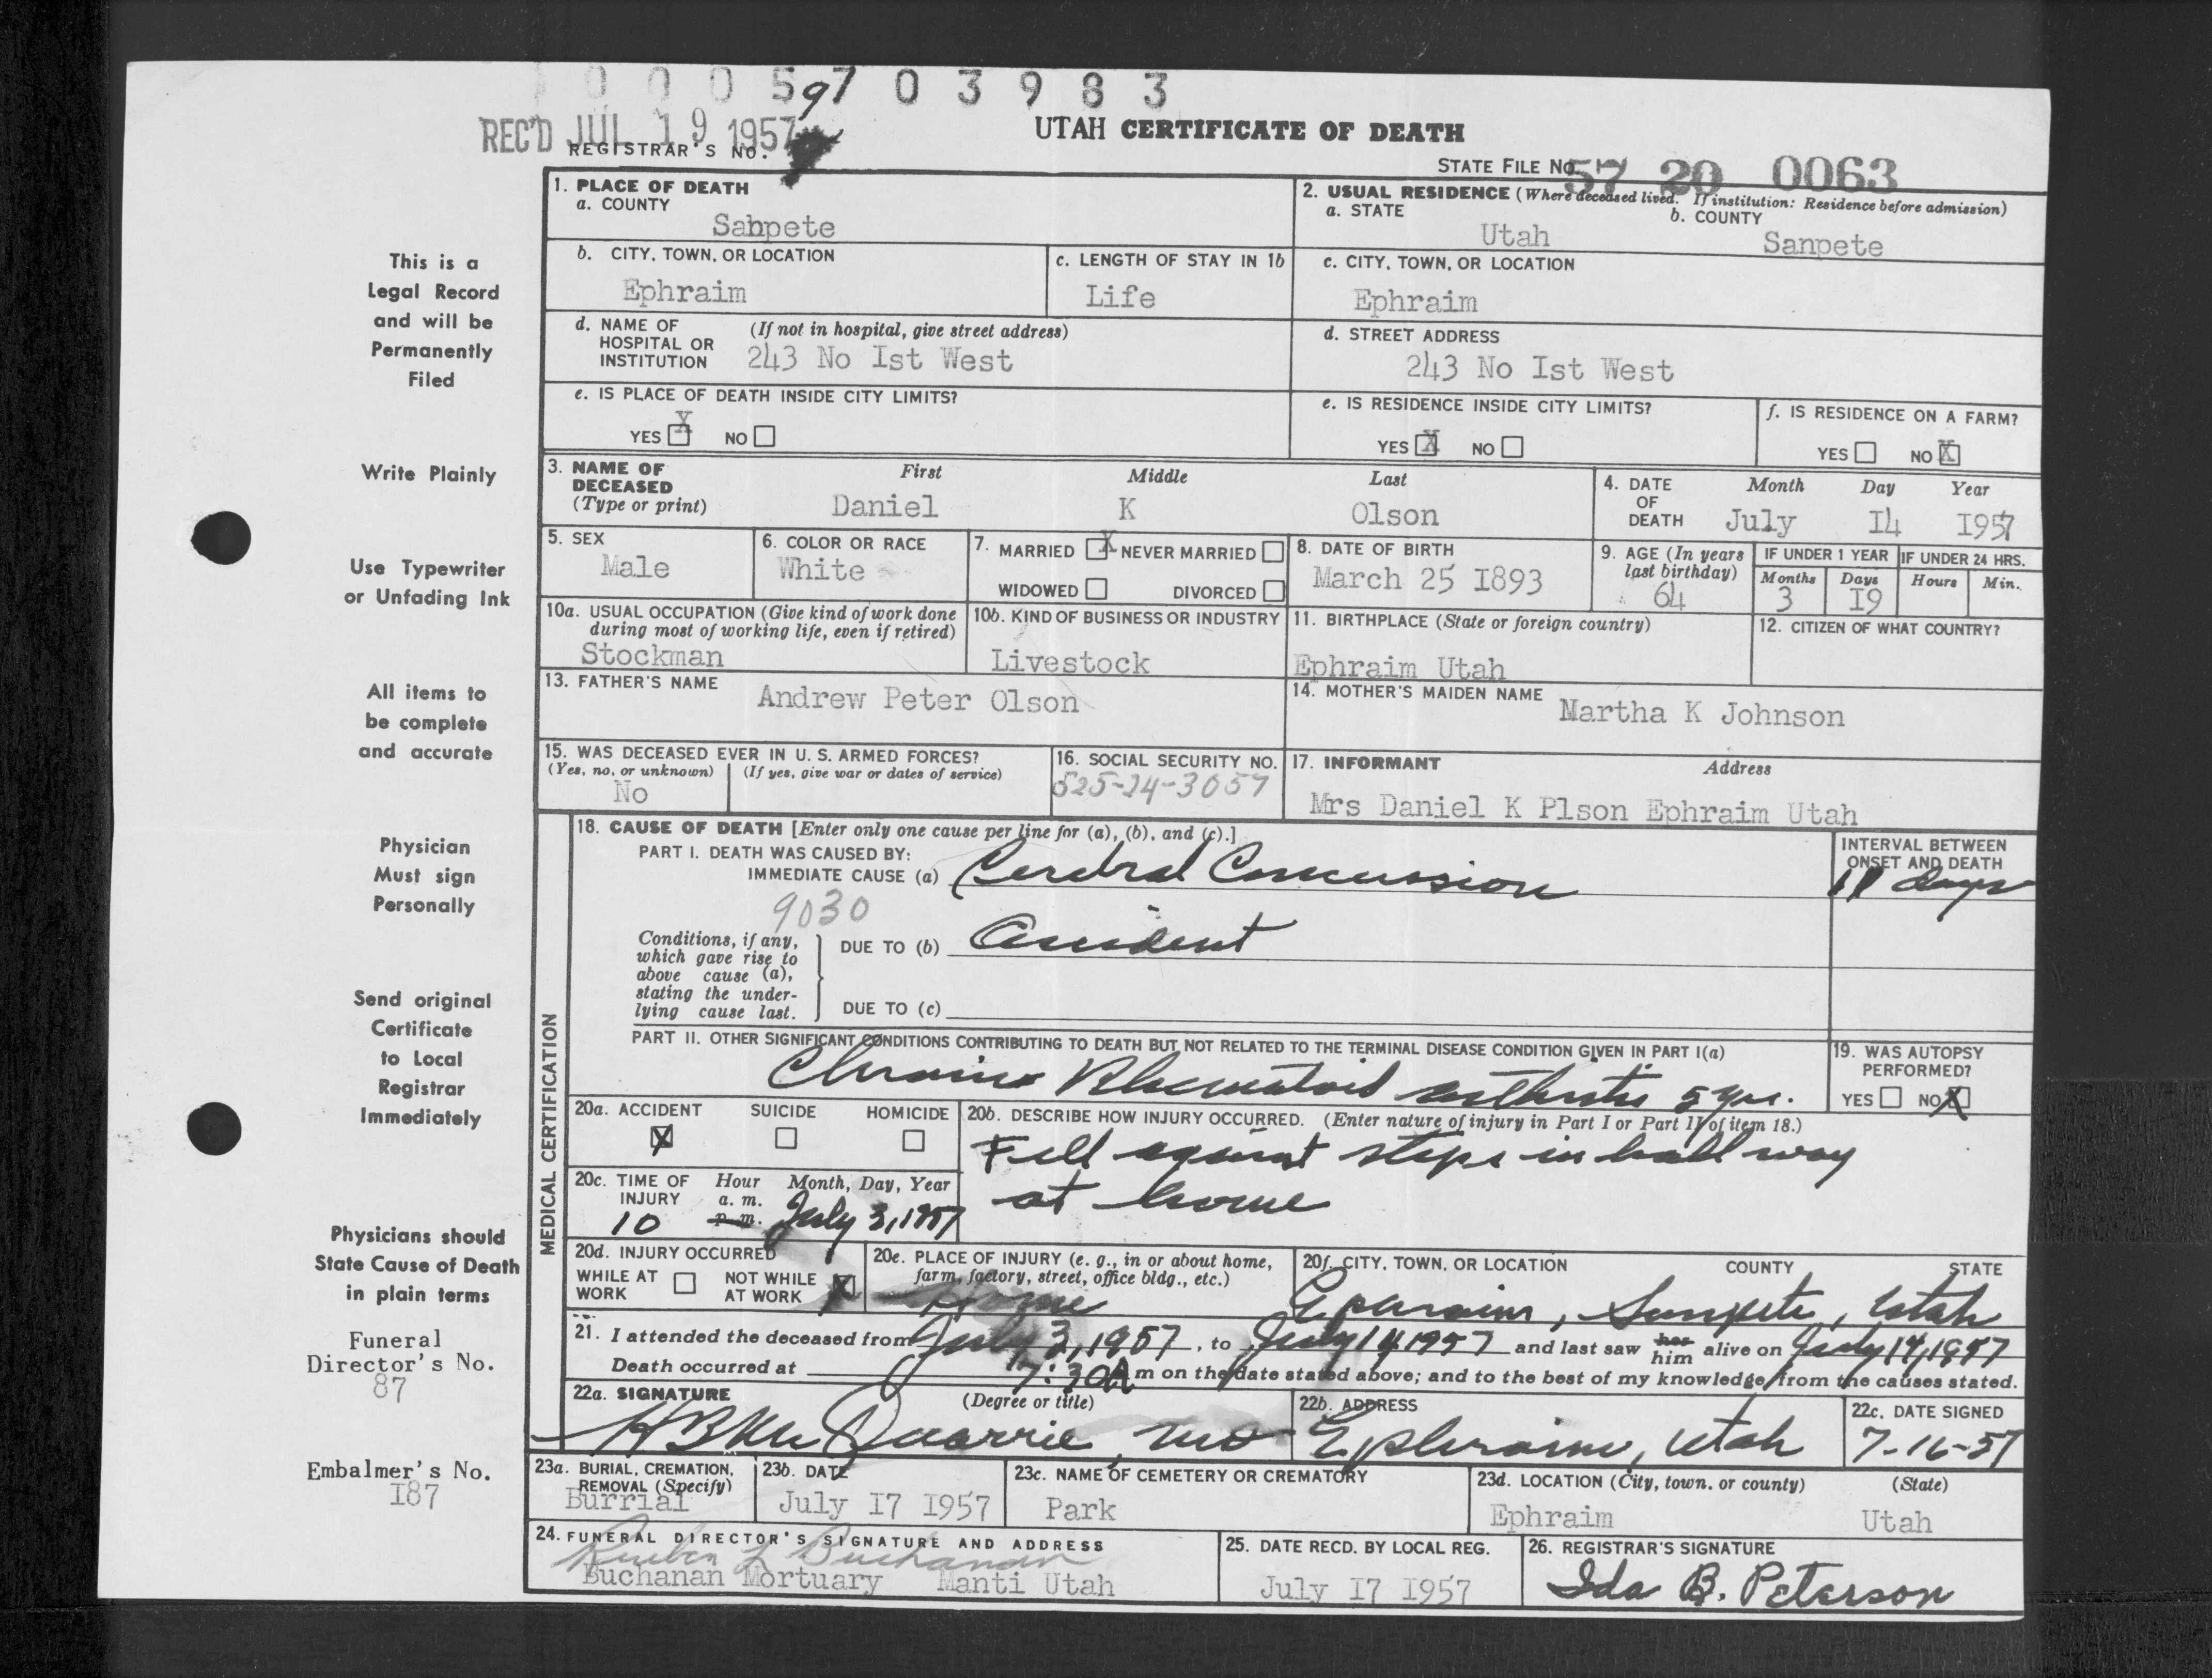 0 0 0 5 9 7 0 3 9 8 3
REC'D JUL 19 1957
REGISTRAR'S NO.
UTAH CERTIFICATE OF DEATH
STATE FILE NO. 57 20 0063
This is a
Legal Record
and will be
Permanently
Filed
Write Plainly
Use Typewriter
or Unfading Ink
All items to
be complete
and accurate
Physician
Must sign
Personally
Send original
Certificate
to Local
Registrar
Immediately
Physicians should
State Cause of Death
in plain terms
Funeral
Director's No.
87
Embalmer's No.
I87
1. PLACE OF DEATH
a. COUNTY
Sanpete
2. USUAL RESIDENCE (Where deceased lived. If institution: Residence before admission)
a. STATE
Utah
b. COUNTY
Sanpete
b. CITY, TOWN, OR LOCATION
Ephraim
c. LENGTH OF STAY IN 1b
Life
c. CITY, TOWN, OR LOCATION
Ephraim
d. NAME OF HOSPITAL OR INSTITUTION
(If not in hospital, give street address)
243 No Ist West
d. STREET ADDRESS
243 No Ist West
e. IS PLACE OF DEATH INSIDE CITY LIMITS?
YES X NO
e. IS RESIDENCE INSIDE CITY LIMITS?
YES X NO
f. IS RESIDENCE ON A FARM?
YES NO X
3. NAME OF DECEASED
(Type or print)
First Middle Last
Daniel K Olson
4. DATE OF DEATH
Month Day Year
July I4 I957
5. SEX
Male
6. COLOR OR RACE
White
7. MARRIED X NEVER MARRIED
WIDOWED DIVORCED
8. DATE OF BIRTH
March 25 I893
9. AGE (In years last birthday)
64
IF UNDER 1 YEAR
Months Days
3 I9
IF UNDER 24 HRS.
Hours Min.
10a. USUAL OCCUPATION (Give kind of work done during most of working life, even if retired)
Stockman
10b. KIND OF BUSINESS OR INDUSTRY
Livestock
11. BIRTHPLACE (State or foreign country)
Ephraim Utah
12. CITIZEN OF WHAT COUNTRY?
13. FATHER'S NAME
Andrew Peter Olson
14. MOTHER'S MAIDEN NAME
Martha K Johnson
15. WAS DECEASED EVER IN U. S. ARMED FORCES?
(Yes, no, or unknown) (If yes, give war or dates of service)
No
16. SOCIAL SECURITY NO.
525-24-3057
17. INFORMANT Address
Mrs Daniel K Plson Ephraim Utah
MEDICAL CERTIFICATION
18. CAUSE OF DEATH [Enter only one cause per line for (a), (b), and (c).]
PART I. DEATH WAS CAUSED BY:
IMMEDIATE CAUSE (a) Cerebral Concussion
INTERVAL BETWEEN ONSET AND DEATH
11 days
9030
Conditions, if any, which gave rise to above cause (a), stating the underlying cause last.
DUE TO (b) Accident
DUE TO (c)
PART II. OTHER SIGNIFICANT CONDITIONS CONTRIBUTING TO DEATH BUT NOT RELATED TO THE TERMINAL DISEASE CONDITION GIVEN IN PART I(a)
Chronic Rheumatoid arthritis 5 yrs.
19. WAS AUTOPSY PERFORMED?
YES NO X
20a. ACCIDENT SUICIDE HOMICIDE
X
20b. DESCRIBE HOW INJURY OCCURRED. (Enter nature of injury in Part I or Part II of item 18.)
Fell against steps in hall way
at home
20c. TIME OF INJURY
Hour Month, Day, Year
a. m.
10 p. m. July 3, 1957
20d. INJURY OCCURRED
WHILE AT WORK NOT WHILE AT WORK X
20e. PLACE OF INJURY (e. g., in or about home, farm, factory, street, office bldg., etc.)
Home
20f. CITY, TOWN, OR LOCATION COUNTY STATE
Ephraim, Sanpete, Utah
21. I attended the deceased from July 3, 1957, to July 14 1957 and last saw her him alive on July 14, 1957
Death occurred at 7:30 A m on the date stated above; and to the best of my knowledge, from the causes stated.
22a. SIGNATURE (Degree or title)
H B McQuarrie, MD
22b. ADDRESS
Ephraim, Utah
22c. DATE SIGNED
7-16-57
23a. BURIAL, CREMATION, REMOVAL (Specify)
Burrial
23b. DATE
July I7 I957
23c. NAME OF CEMETERY OR CREMATORY
Park
23d. LOCATION (City, town, or county) (State)
Ephraim Utah
24. FUNERAL DIRECTOR'S SIGNATURE AND ADDRESS
Reuben L Buchanan
Buchanan Mortuary Manti Utah
25. DATE RECD. BY LOCAL REG.
July I7 I957
26. REGISTRAR'S SIGNATURE
Ida B. Peterson